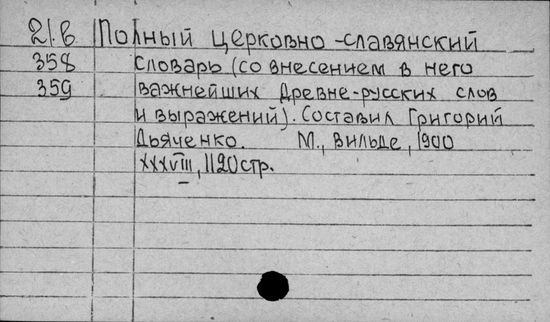 21.в Полный церковно-славянский
358 словарь (со внесением в него
359 важнейших древне-русских слов
и выражений). Составил Григорий
Дьяченко. М., Вильде, 1900
XXXVIII, 1120 стр.